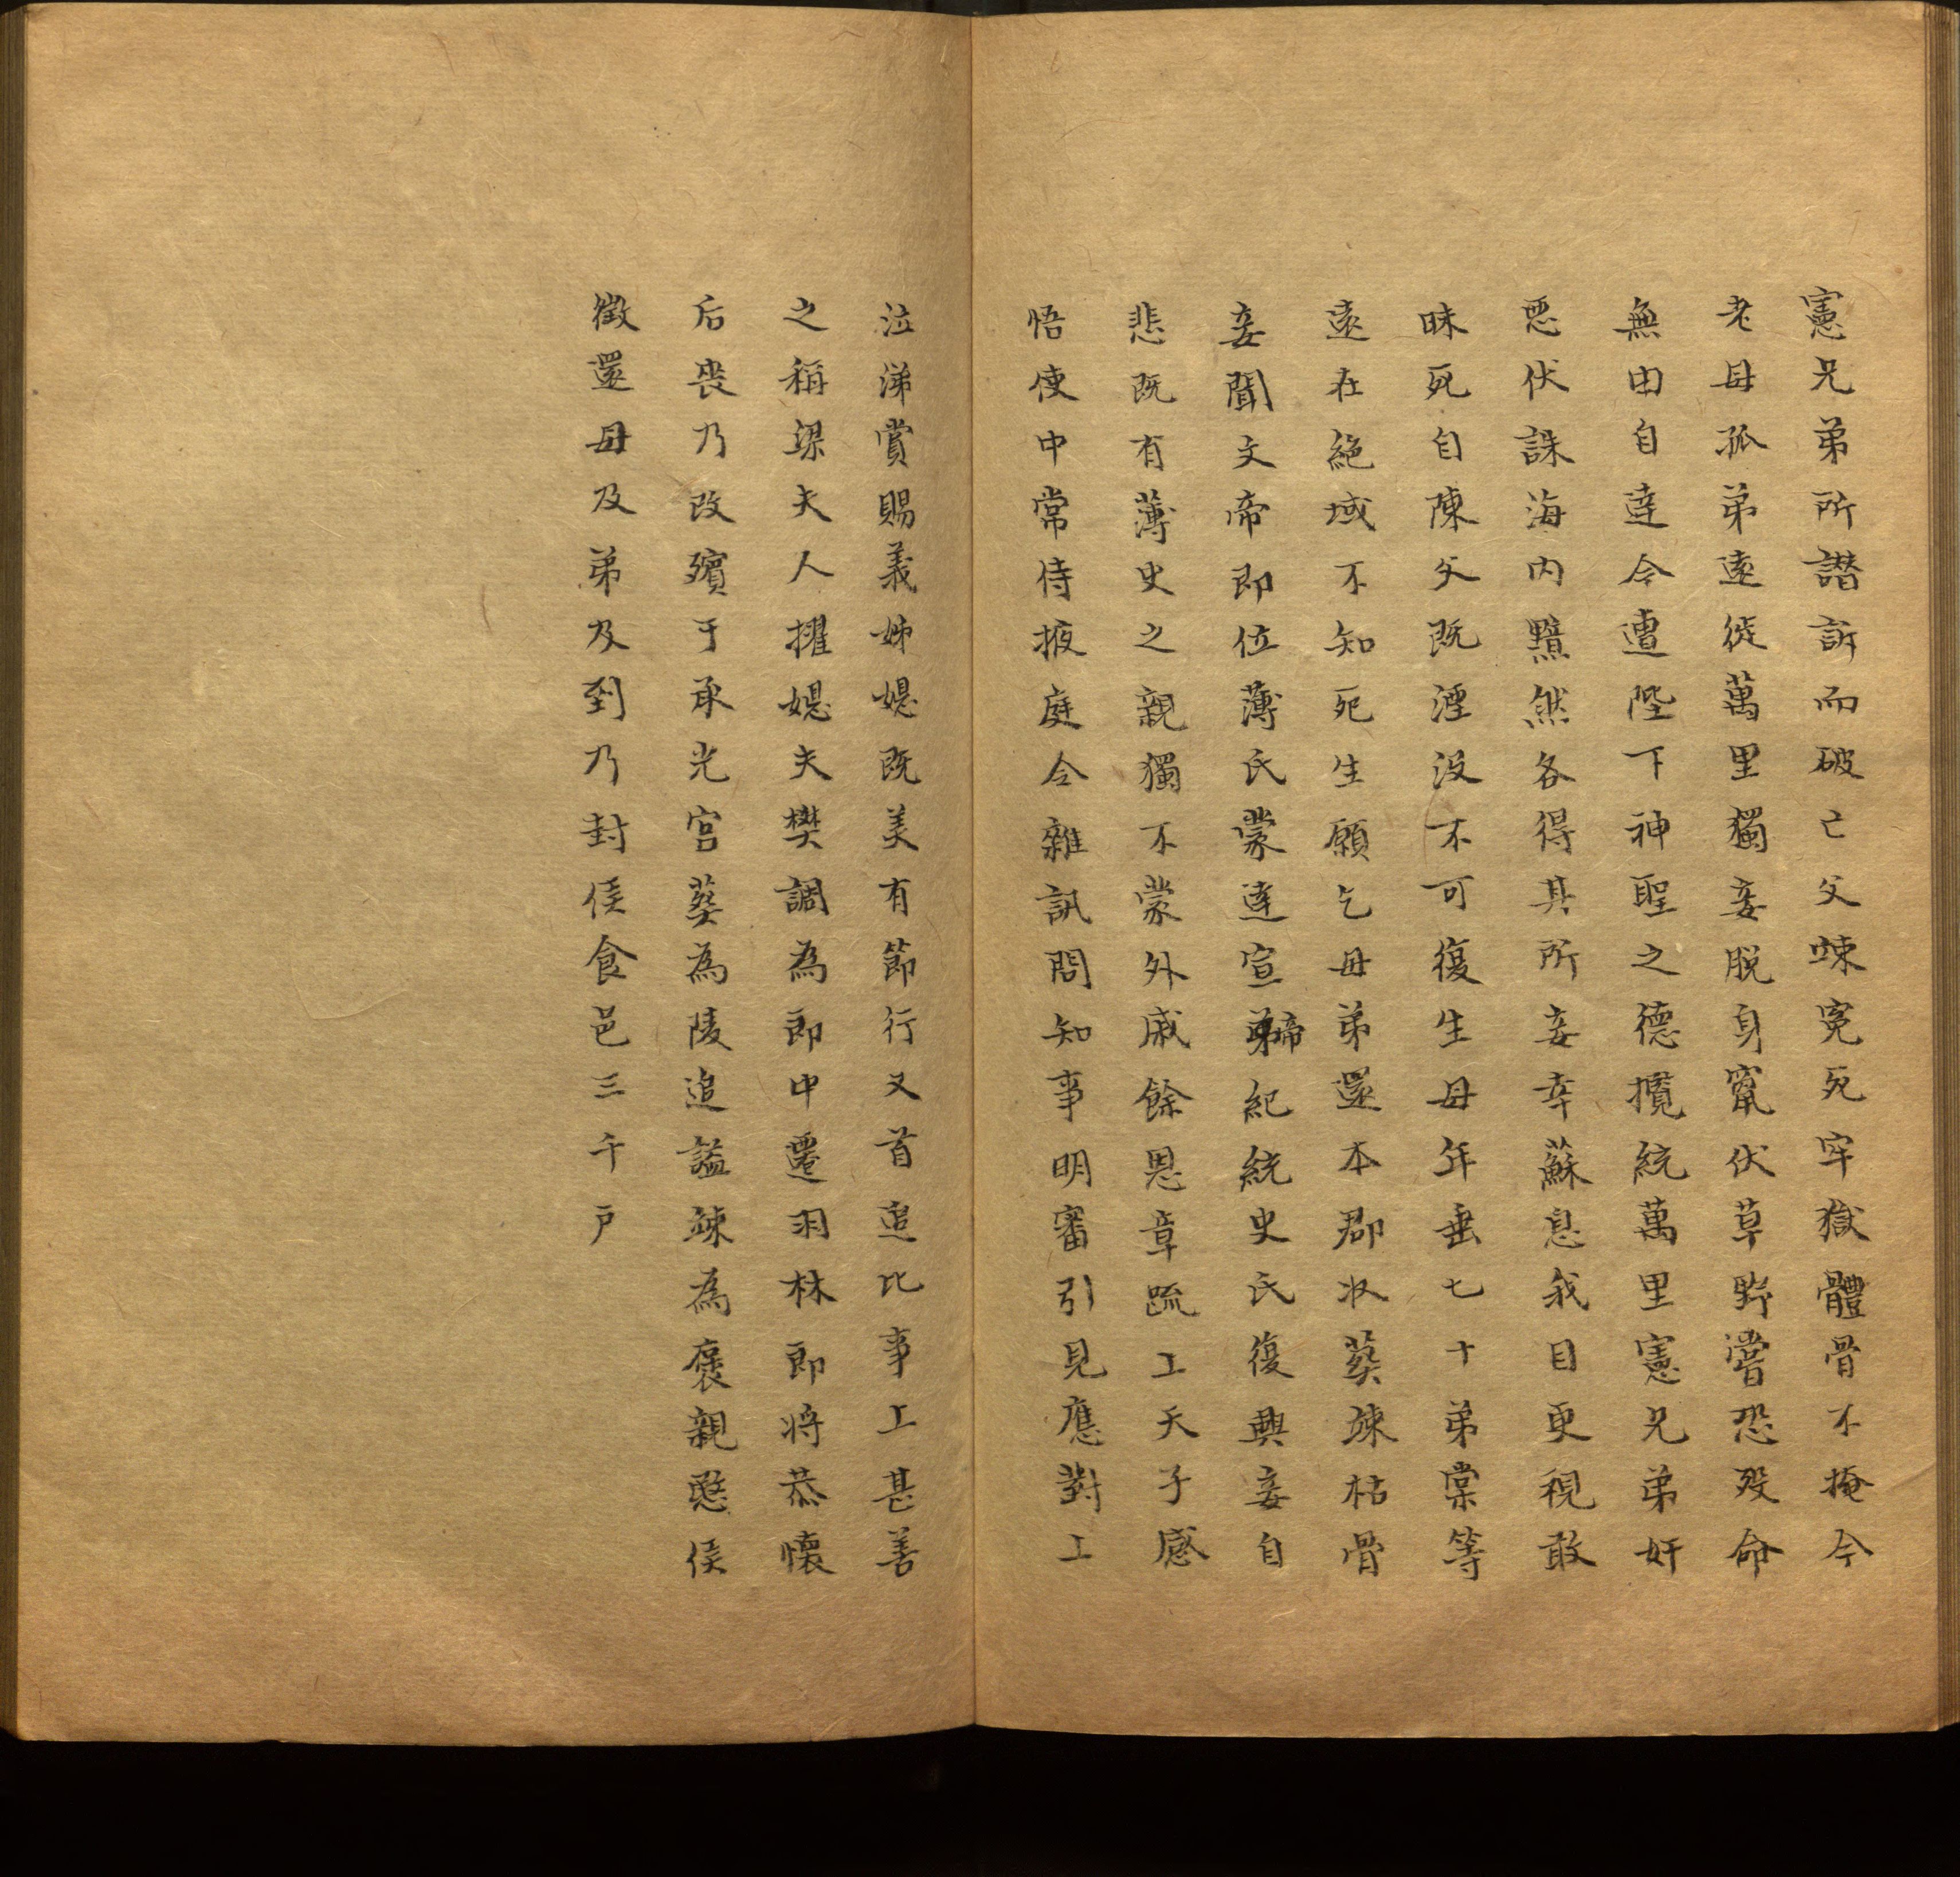 憲兄弟所譖訴而破亡父竦冤死牢獄體骨不掩今
老母孤弟遠徙萬里獨妾脱身竄伏草野嘗恐殁命
無由自達今遭陛下神聖之德攬統萬里憲兄弟奸
惡伏誅海内黯然各得其所妾幸蘇息我目更視敢
昧死自陳父既湮没不可復生母年垂七十弟棠等
遠在絶域不知死生願乞母弟還本郡收葬竦枯骨
妾聞文帝即位薄氏蒙達宣帝紀統史氏復興妾自
悲既有薄史之親獨不蒙外戚餘恩章疏上天子感
悟使中常侍掖庭令雜訊問知事明審引見應對上
泣涕賞賜義姊嫕既美有節行又首追比事上甚善
之稱梁夫人擢嫕夫樊調為郎中遷羽林郎將恭懷
后喪乃改殯于承光宫葬為陵追謚竦為褒親愍侯
徵還母及弟及到乃封侯食邑三千户